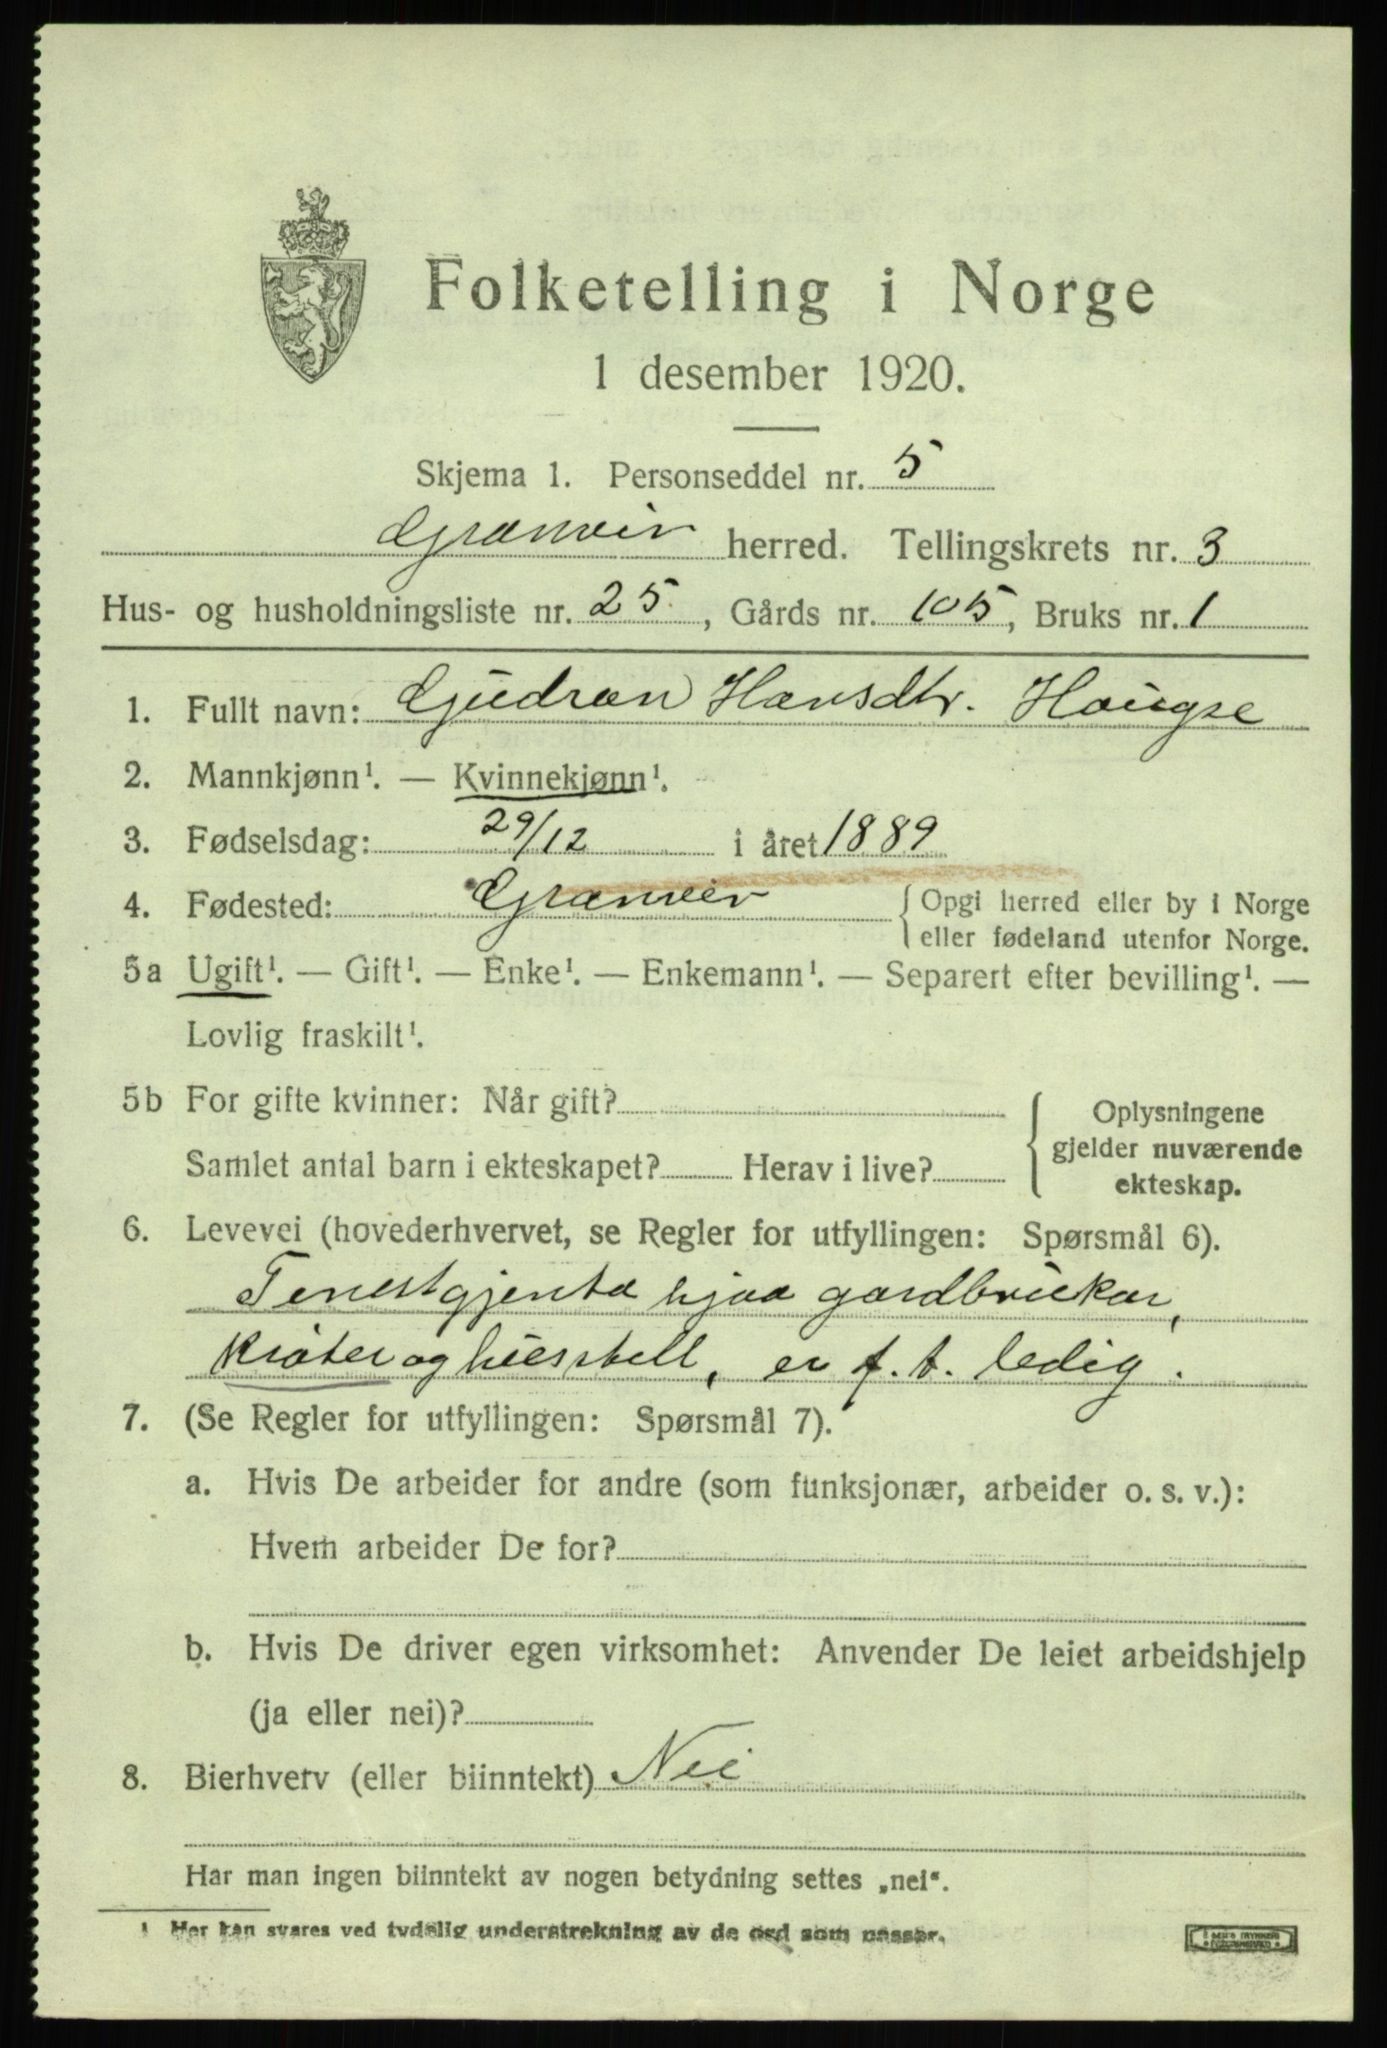 Folketelling i Norge
1 desember 1920.
Skjema 1. Personseddel nr. 5
Granvin herred. Tellingskrets nr. 3
Hus- og husholdningsliste nr. 25, Gårds nr. 105, Bruks nr. 1
1. Fullt navn: Gudrun Hansdtr. Haugse
2. Mannkjønn¹. — Kvinnekjønn¹.
3. Fødselsdag: 29/12 i året 1889
4. Fødested: Granvin { Opgi herred eller by i Norge
eller fødeland utenfor Norge.
5a Ugift¹. — Gift¹. — Enke¹. — Enkemann¹. — Separert efter bevilling¹. —
Lovlig fraskilt¹.
5b For gifte kvinner: Når gift?
Samlet antal barn i ekteskapet? Herav i live?
{ Oplysningene
gjelder nuværende
ekteskap.
6. Levevei (hovederhvervet, se Regler for utfyllingen: Spørsmål 6).
Tenestgjenta hjaa gardbrukar,
krøter og husstell, er f. t. ledig.
7. (Se Regler for utfyllingen: Spørsmål 7).
a. Hvis De arbeider for andre (som funksjonær, arbeider o. s. v.):
Hvem arbeider De for?
b. Hvis De driver egen virksomhet: Anvender De leiet arbeidshjelp
(ja eller nei)?
8. Bierhverv (eller biinntekt) Nei
Har man ingen biinntekt av nogen betydning settes „nei“.
1 Her kan svares ved tydelig understrekning av de ord som passer.